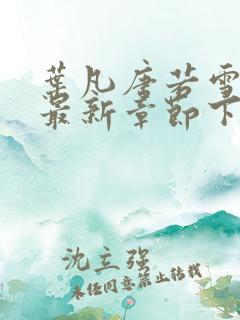 叶凡唐若雪
最新章节下
沈立强
未经同意禁止转载